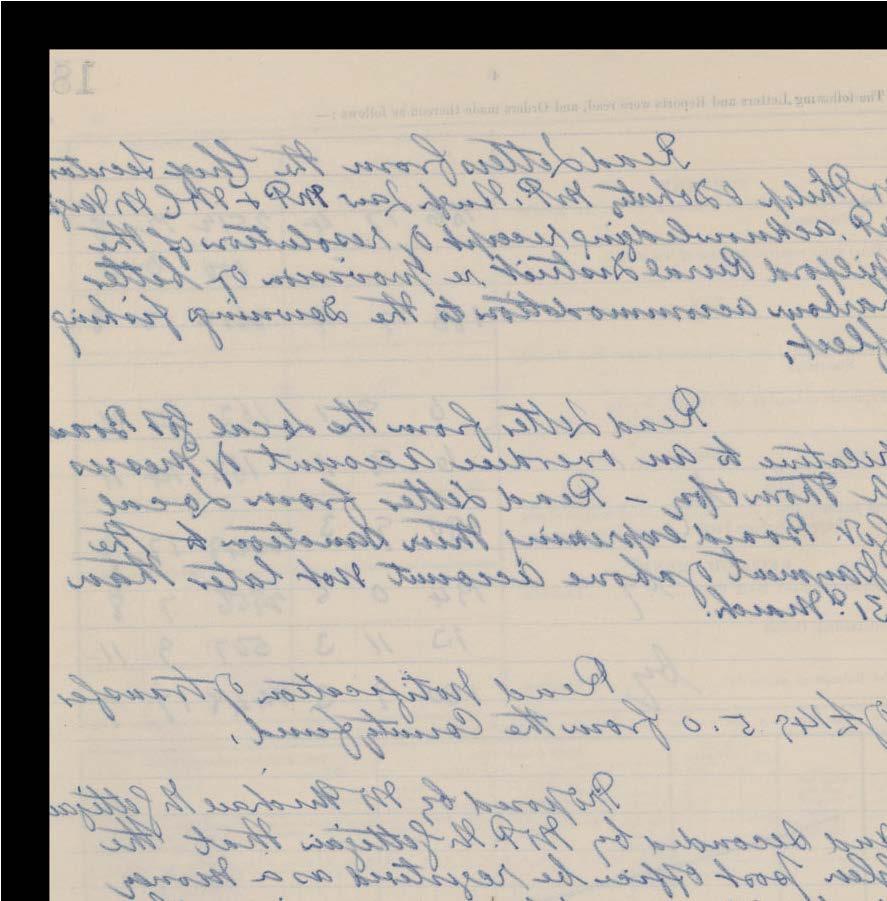 18
4
The following Letters and Reports were read, and Orders made thereon as follows:—
Read Letters from the Chief Secretar
Philip O'Doherty M.P. Hugh Law M.P. & Mr.
P. acknowledging receipt of resolution of the
ilford Rural District re provision of better
arbour accommodation to the Downings fishing
fleet.
Read letter from the Local Govt Boar
relative to an overdue account of Messrs
Thornton – Read letter from Local
Govt. Board expressing their sanction to the
payment of above account not later than
31st March.
Read notification of transfer
of £145. 5. 0 from the County fund.
Proposed by Mr Michael McGettigan
and seconded by Mr P. McGettigan that the
post office be registered as a money